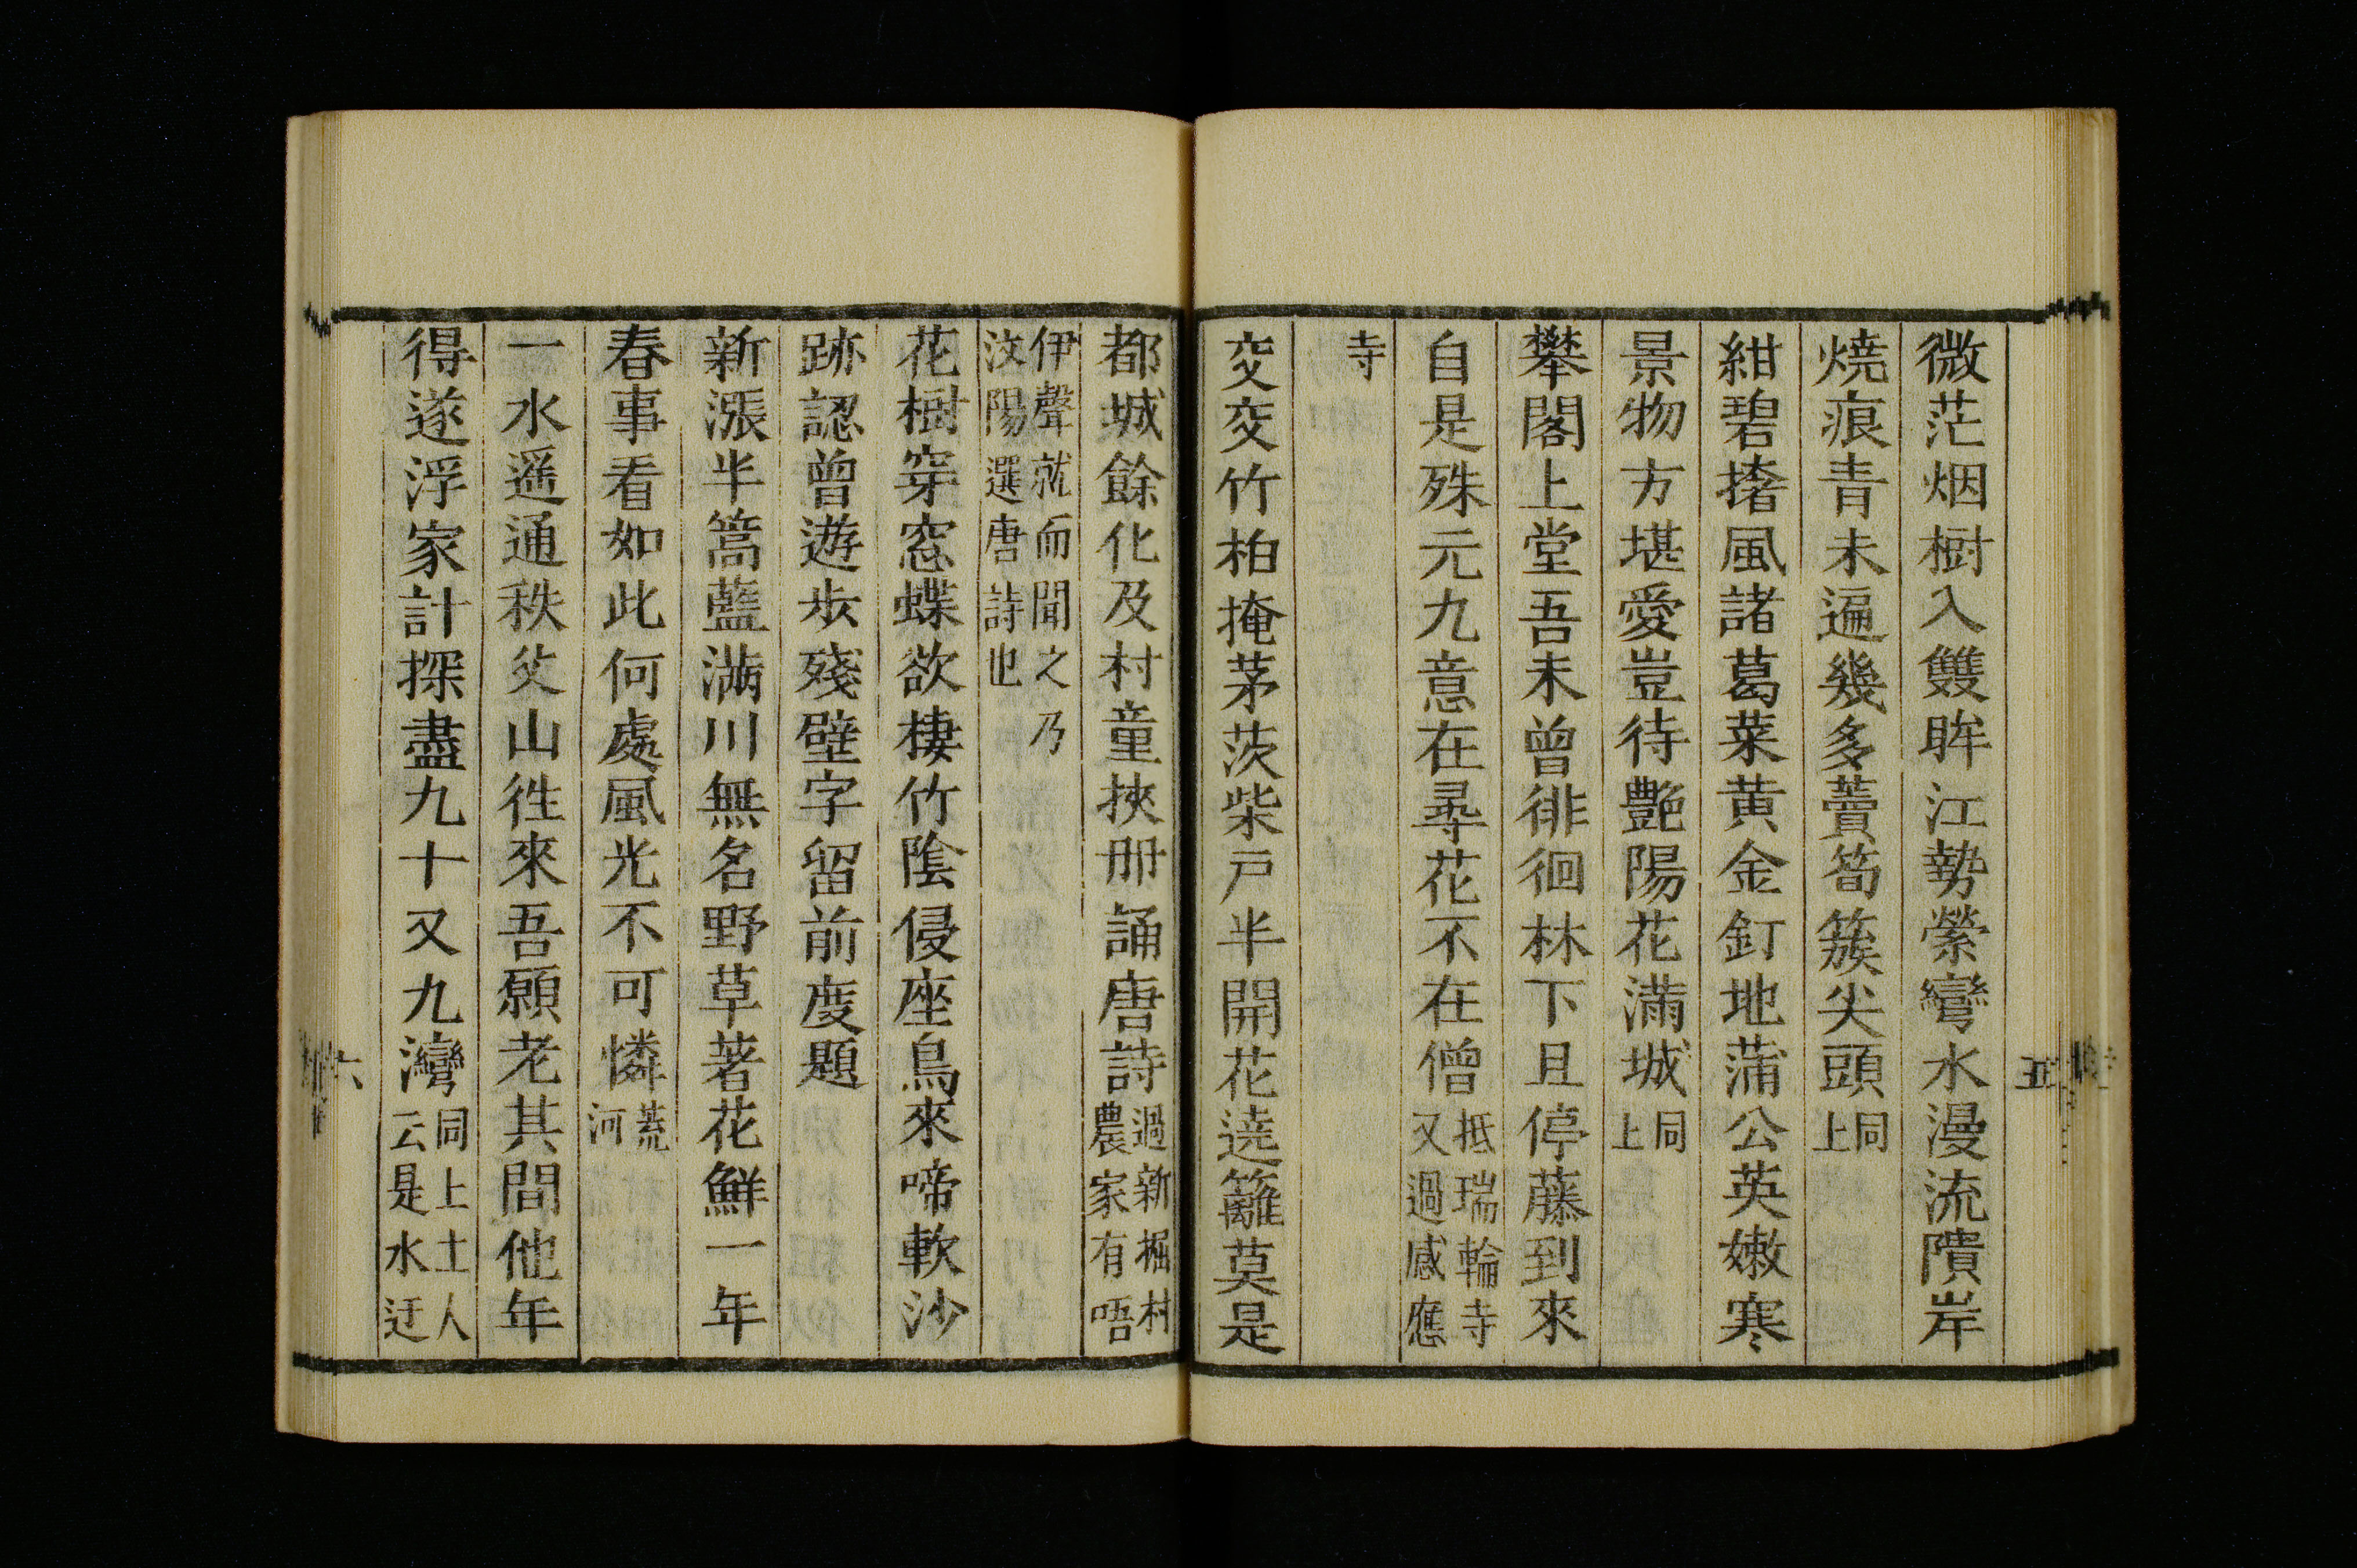 微茫烟樹入雙眸江勢縈彎水漫流隤岸
燒痕青未遍幾多薲筍簇尖頭同上
紺碧撦風諸葛菜黄金釘地蒲公英嫩寒
景物方堪愛豈待艷陽花滿城同上
攀閣上堂吾未曾徘徊林下且停藤到來
自是殊元九意在尋花不在僧抵瑞輪寺又過感應
寺
交交竹柏掩茅茨柴戸半開花遶籬莫是
都城餘化及村童挾冊誦唐詩過新掘村農家有唔
伊聲就而聞之乃汶陽選唐詩也
花樹穿窓蝶欲棲竹陰侵座鳥來啼軟沙
跡認曽遊歩殘壁字留前度題
新漲半篙藍滿川無名野草著花鮮一年
春事看如此何處風光不可憐荒河
一水遥通秩父山徃來吾願老其間他年
得遂浮家計探盡九十又九灣同上土人云是水迂
五
六